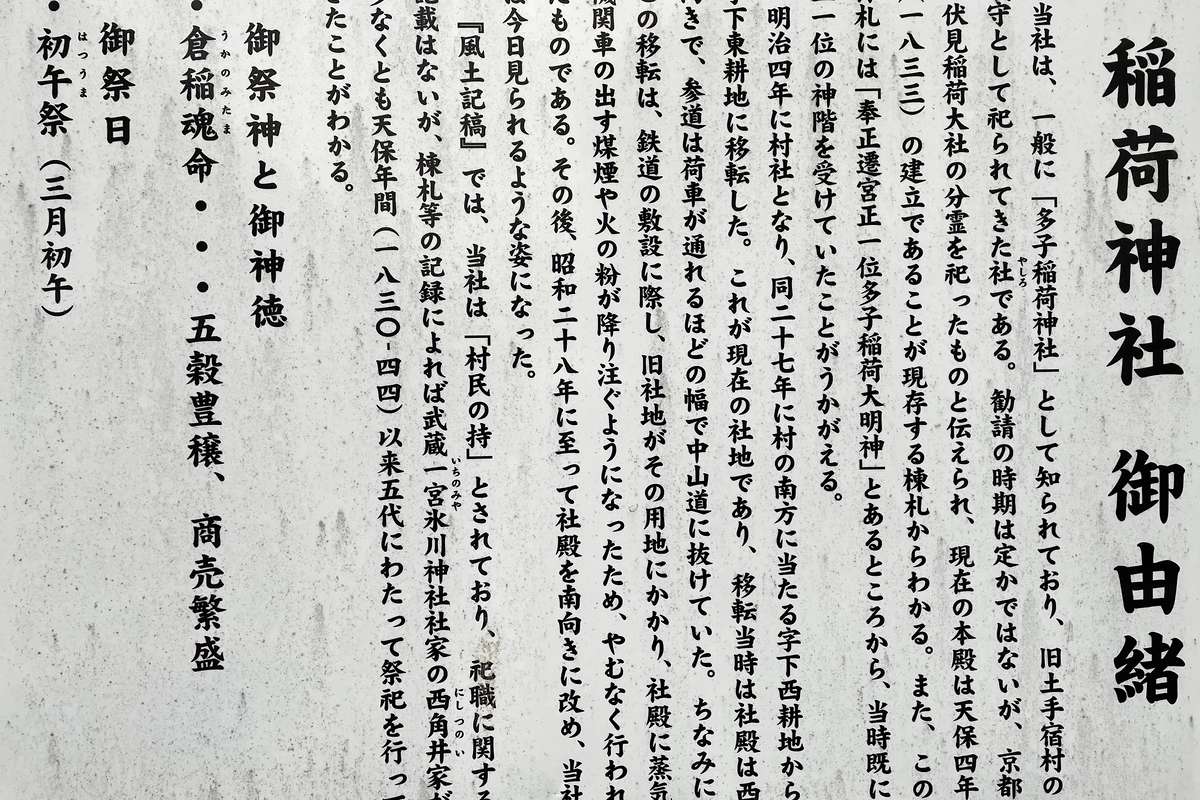 稲荷神社 御由緒
当社は、一般に「多子稲荷神社」として知られており、旧土手宿村の
守として祀られてきた社である。勧請の時期は定かではないが、京都
伏見稲荷大社の分霊を祀ったものと伝えられ、現在の本殿は天保四年
一八三三）の建立であることが現存する棟札からわかる。また、この
札には「奉正遷宮正一位多子稲荷大明神」とあるところから、当時既に
一位の神階を受けていたことがうかがえる。
明治四年に村社となり、同二十七年に村の南方に当たる字下西耕地から
字下東耕地に移転した。これが現在の社地であり、移転当時は社殿は西
きで、参道は荷車が通れるほどの幅で中山道に抜けていた。ちなみに
の移転は、鉄道の敷設に際し、旧社地がその用地にかかり、社殿に蒸気
機関車の出す煤煙や火の粉が降り注ぐようになったため、やむなく行われ
たものである。その後、昭和二十八年に至って社殿を南向きに改め、当社
は今日見られるような姿になった。
『風土記稿』では、当社は「村民の持」とされており、祀職に関する
記載はないが、棟札等の記録によれば武蔵一宮氷川神社社家の西角井家が
なくとも天保年間（一八三〇-四四）以来五代にわたって祭祀を行っ
たことがわかる。
御祭神と御神徳
・倉稲魂命・・・五穀豊穣、商売繁盛
御祭日
・初午祭（三月初午）
やしろ
いちのみや
にしつのい
うかのみたま
はつうま